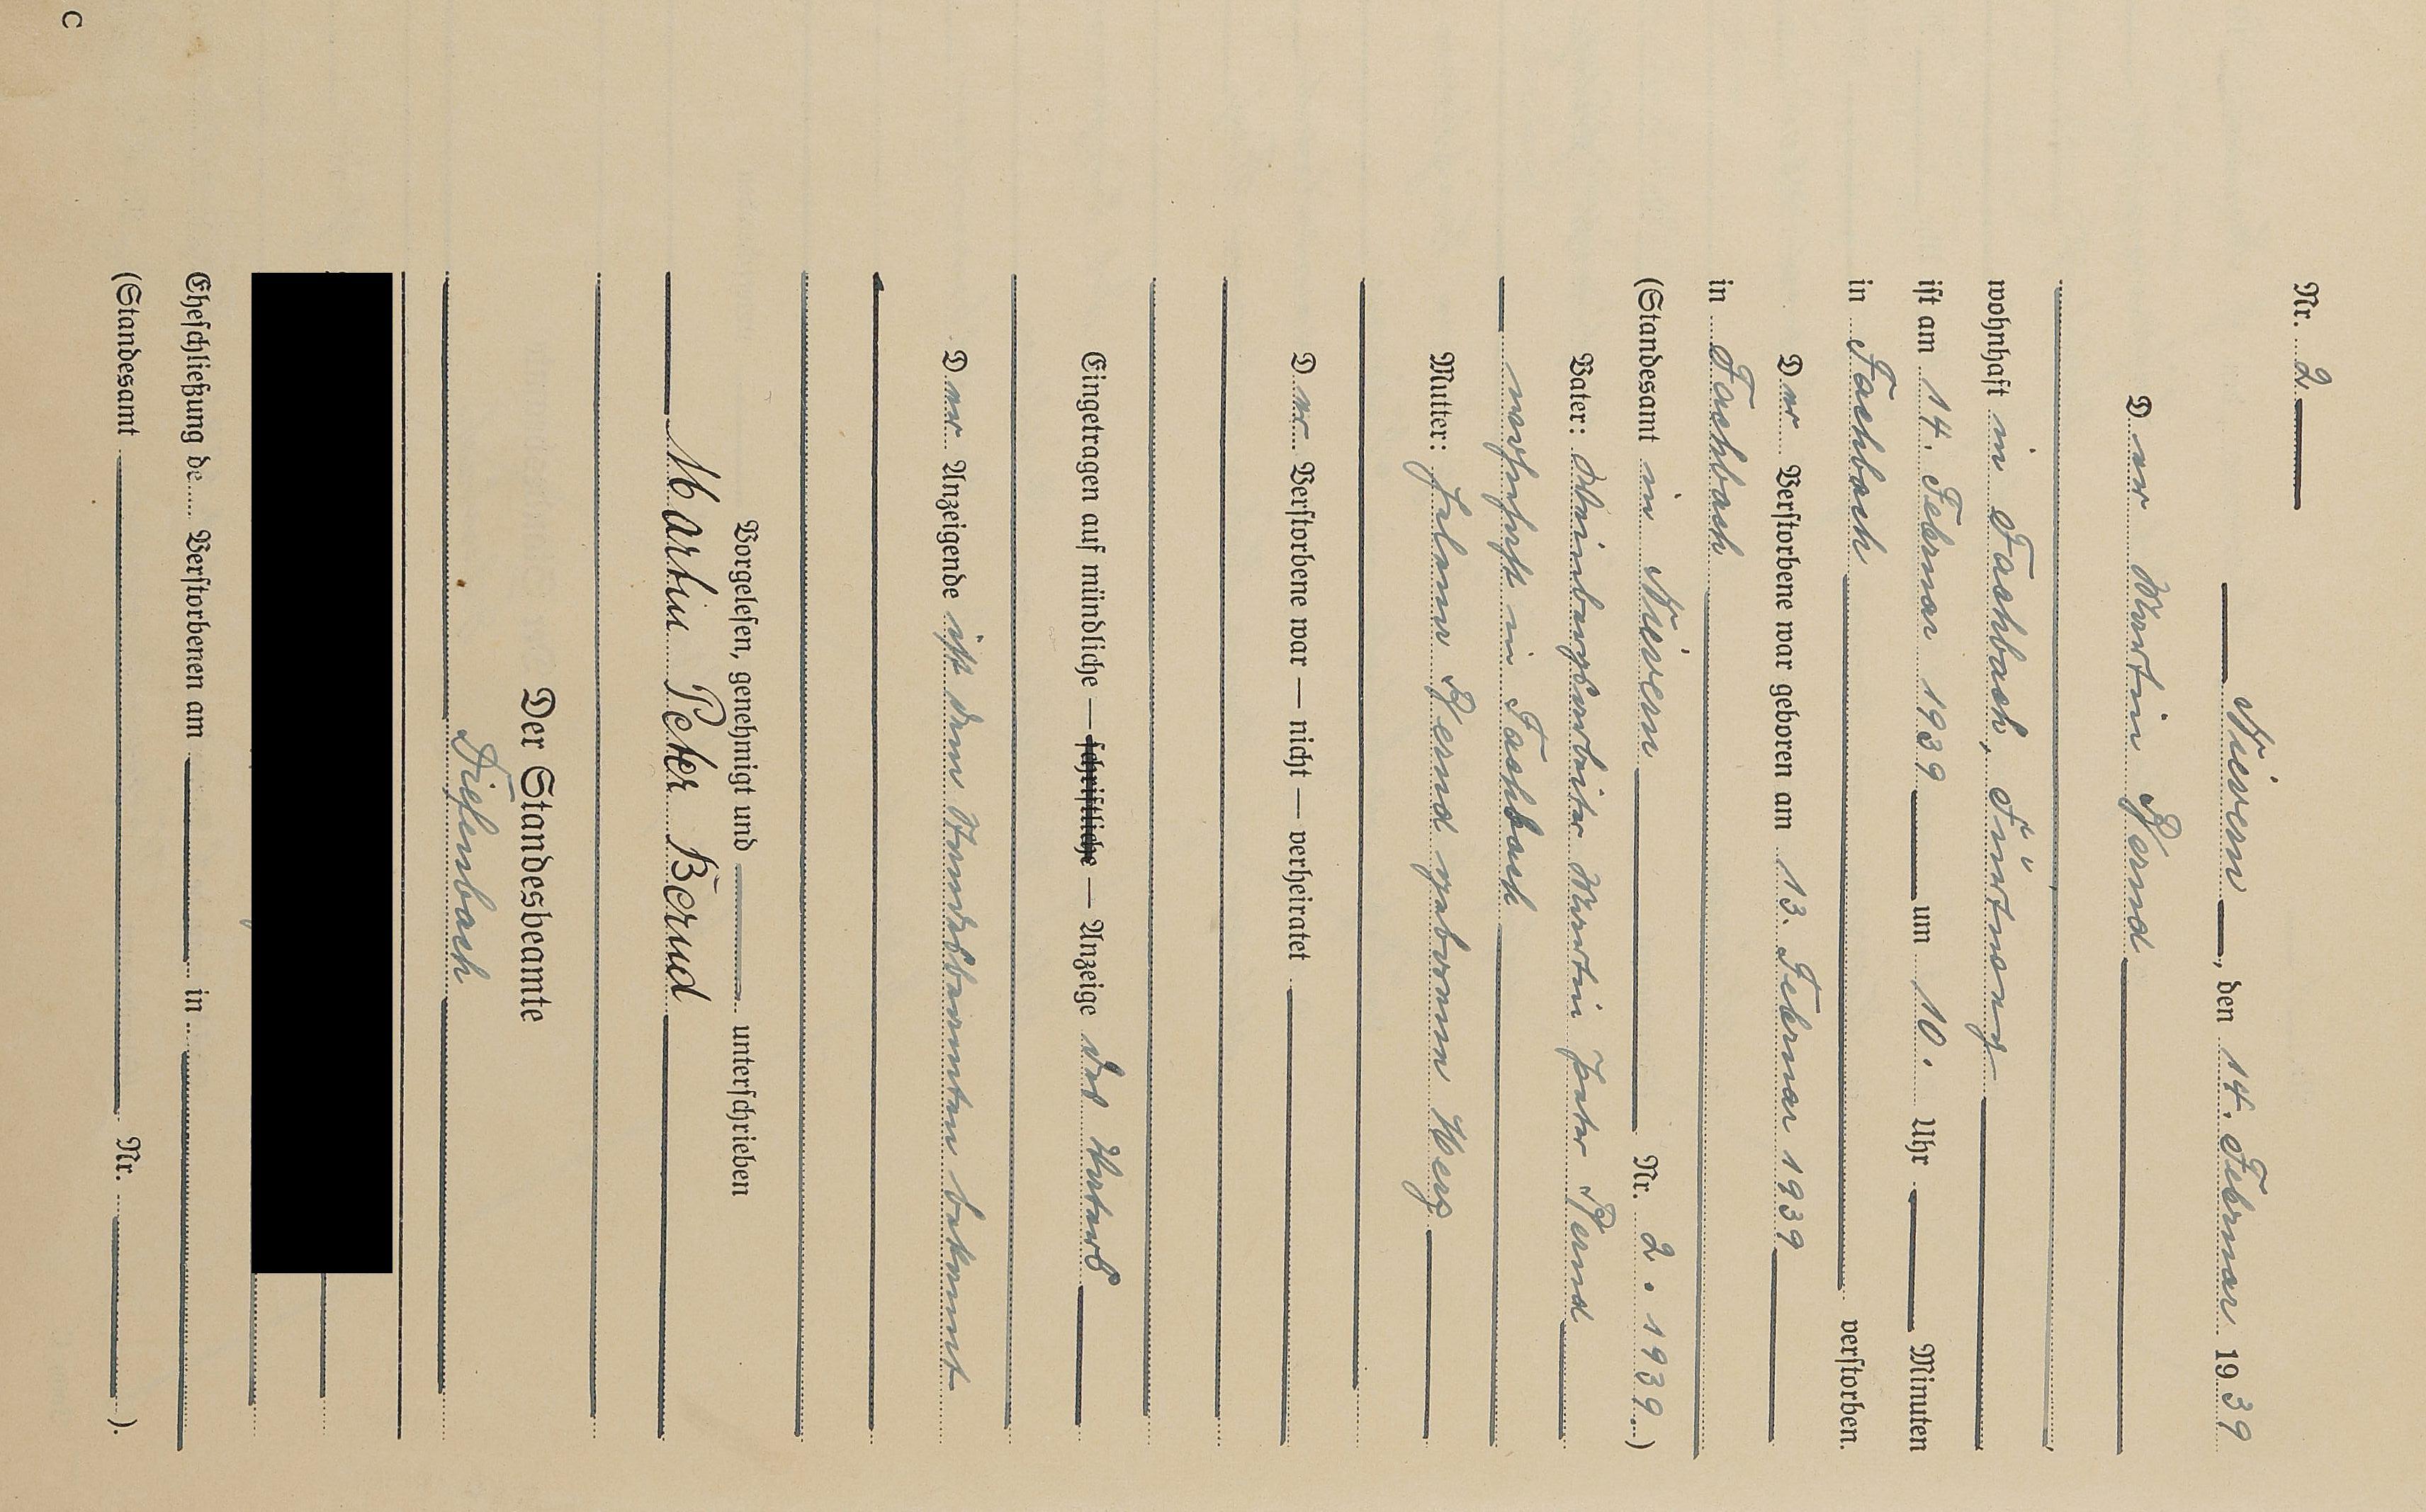 Nr. 2
Nievern, den 14. Februar 1939
Der Martin Bernd
wohnhaft in Fachbach,
ist am 14. Februar 1939 um 10. Uhr Minuten
in Fachbach verstorben.
Der Verstorbene war geboren am 13. Februar 1939
in Fachbach
(Standesamt in Nievern Nr. 2. 1939.)
Vater: Martin Peter Bernd
wohnhaft in Fachbach
Mutter: Helene Bernd geborene Herz
Der Verstorbene war — nicht — verheiratet
Eingetragen auf mündliche — schriftliche — Anzeige des Vaters
Der Anzeigende ist dem Standesbeamten bekannt
Vorgelesen, genehmigt und unterschrieben
Martin Peter Bernd
Der Standesbeamte
Diefenbach
Eheschließung de Verstorbenen am in
(Standesamt Nr. ).
C